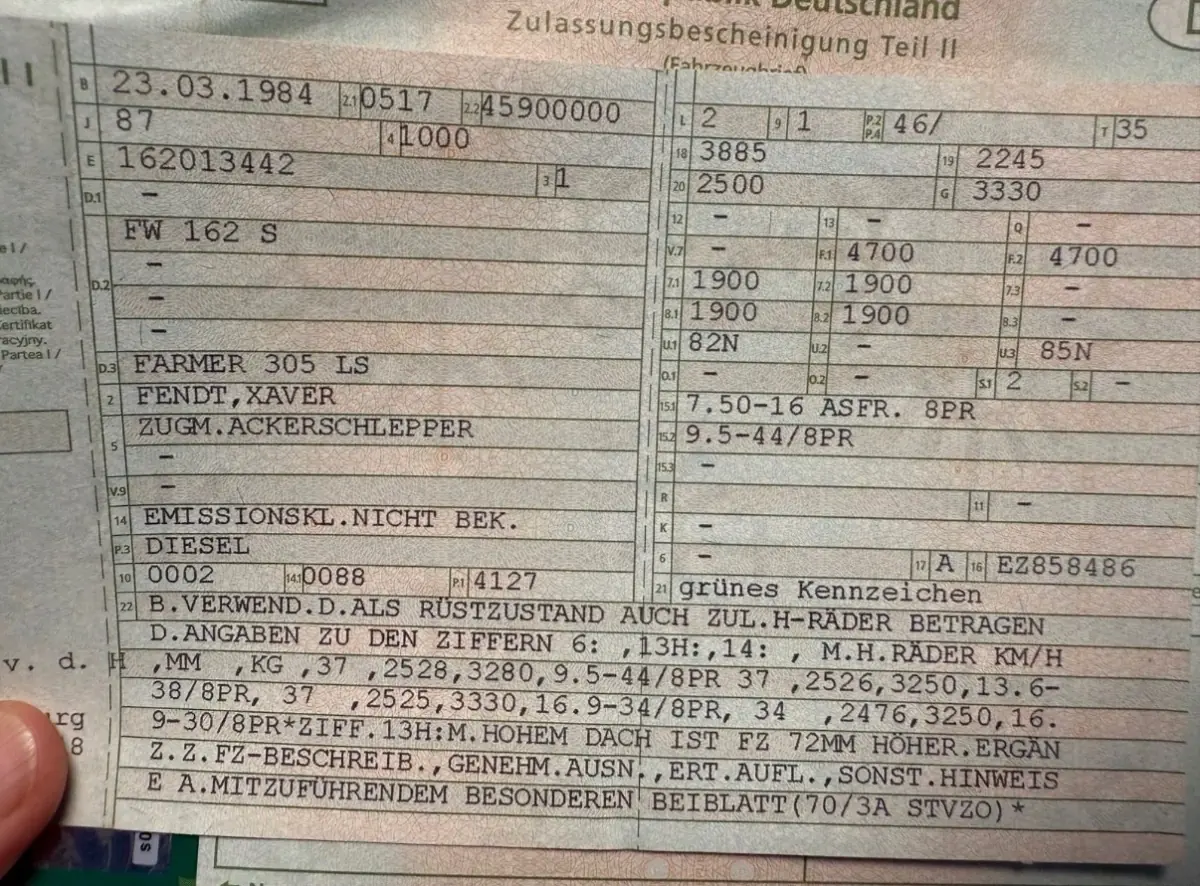 Deutschland
Zulassungsbescheinigung Teil II
(Fahrzeugbrief)
II
B 23.03.1984 2.1 0517 2.2 45900000
J 87 4 1000
E 162013442 3 1
D.1 –
FW 162 S
–
D.2 –
–
D.3 FARMER 305 LS
2 FENDT,XAVER
5 ZUGM.ACKERSCHLEPPER
–
V.9 –
14 EMISSIONSKL.NICHT BEK.
P.3 DIESEL
10 0002 14.1 0088 P.1 4127
L 2 9 1 P.2 P.4 46/ T 35
18 3885 19 2245
20 2500 G 3330
12 – 13 – Q –
V.7 – F.1 4700 F.2 4700
7.1 1900 7.2 1900 7.3 –
8.1 1900 8.2 1900 8.3 –
U.1 82N U.2 – U.3 85N
O.1 – O.2 – S.1 2 S.2 –
15.1 7.50-16 ASFR. 8PR
15.2 9.5-44/8PR
15.3 –
R 11 –
K –
6 – 17 A 16 EZ858486
21 grünes Kennzeichen
22 B.VERWEND.D.ALS RÜSTZUSTAND AUCH ZUL.H-RÄDER BETRAGEN
D.ANGABEN ZU DEN ZIFFERN 6: ,13H:,14: , M.H.RÄDER KM/H
,MM ,KG ,37 ,2528,3280,9.5-44/8PR 37 ,2526,3250,13.6-
38/8PR, 37 ,2525,3330,16.9-34/8PR, 34 ,2476,3250,16.
9-30/8PR*ZIFF.13H:M.HOHEM DACH IST FZ 72MM HÖHER.ERGÄN
Z.Z.FZ-BESCHREIB.,GENEHM.AUSN.,ERT.AUFL.,SONST.HINWEIS
E A.MITZUFÜHRENDEM BESONDEREN BEIBLATT(70/3A STVZO)*
e I /
Partie I /
ecība.
ertifikat
acyjny.
Partea I /
v. d. H
urg
8